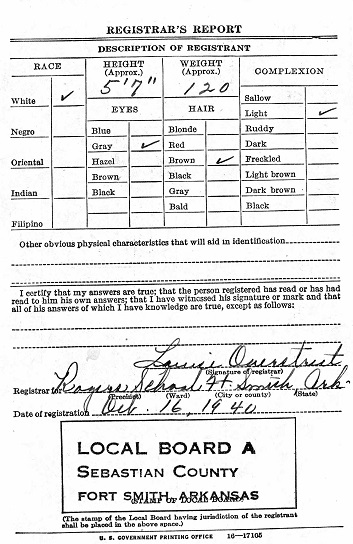 REGISTRAR'S REPORT
DESCRIPTION OF REGISTRANT
RACE
HEIGHT (Approx.)
WEIGHT (Approx.)
COMPLEXION
5'7"
120
White ✓
EYES
HAIR
Sallow
Light ✓
Negro
Blue
Blonde
Ruddy
Gray ✓
Red
Dark
Oriental
Hazel
Brown ✓
Freckled
Brown
Black
Light brown
Indian
Black
Gray
Dark brown
Bald
Black
Filipino
Other obvious physical characteristics that will aid in identification
I certify that my answers are true; that the person registered has read or has had
read to him his own answers; that I have witnessed his signature or mark and that
all of his answers of which I have knowledge are true, except as follows:
Overstreet
(Signature of registrar)
Registrar for Rogers School Ft. Smith, Ark
(Precinct) (Ward) (City or county) (State)
Date of registration Oct. 16, 1940
LOCAL BOARD A
SEBASTIAN COUNTY
FORT SMITH, ARKANSAS
STAMP OF LOCAL BOARD
(The stamp of the Local Board having jurisdiction of the registrant
shall be placed in the above space.)
U. S. GOVERNMENT PRINTING OFFICE 16—17105